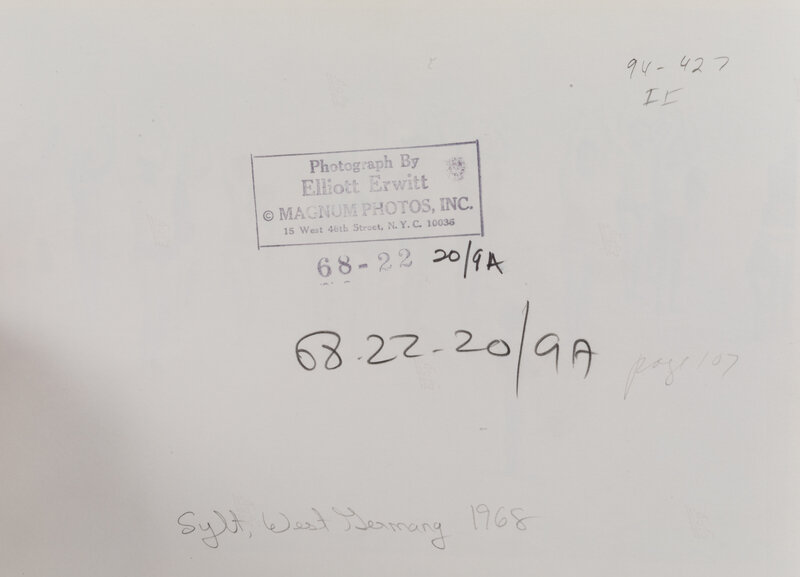 94-427
II
Photograph By
Elliott Erwitt
© MAGNUM PHOTOS, INC.
15 West 46th Street, N.Y.C. 10036
68-22 20/9A
68-22-20/9A
page 107
Sylt, West Germany 1968